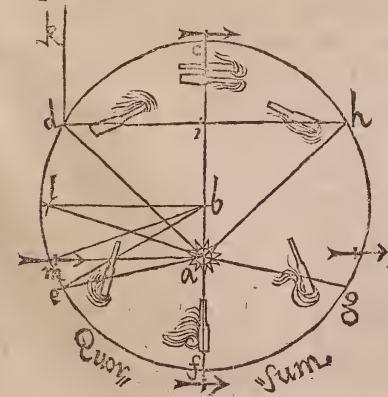 c
d i h
l b
m a
e g
f
Quon" "sum.